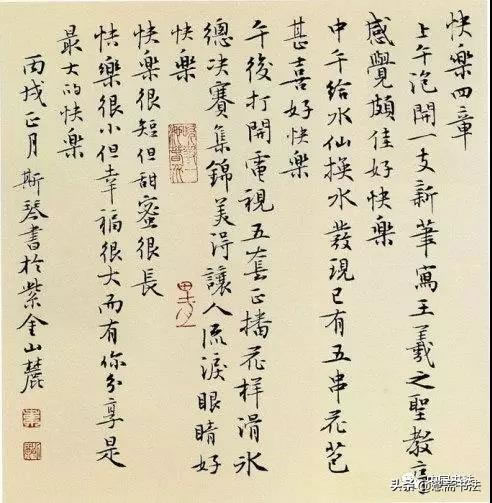 快樂四章
上午泡開一支新筆寫王羲之聖教序
感覺頗佳好快樂
中午給水仙換水發現已有五串花苞
甚喜好快樂
午後打開電視五套正播花樣滑冰
總決賽集錦美得讓人流淚眼睛好
快樂
快樂很短但甜蜜很長
快樂很小但幸福很大而有你分享是
最大的快樂
丙戌正月斯琴書於紫金山麓
头条@慧斋书法